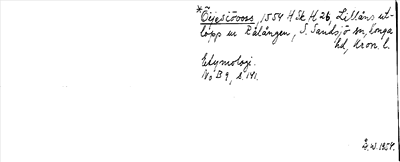 *Öijesiövoss, 1554 HSk H 26, Lillåns ut-
lopp ur Rålången, S. Sandsjö sn, Konga
hd, Kron. l.
Etymologi.
NoB 9, s 141.
Å.W. 1954.